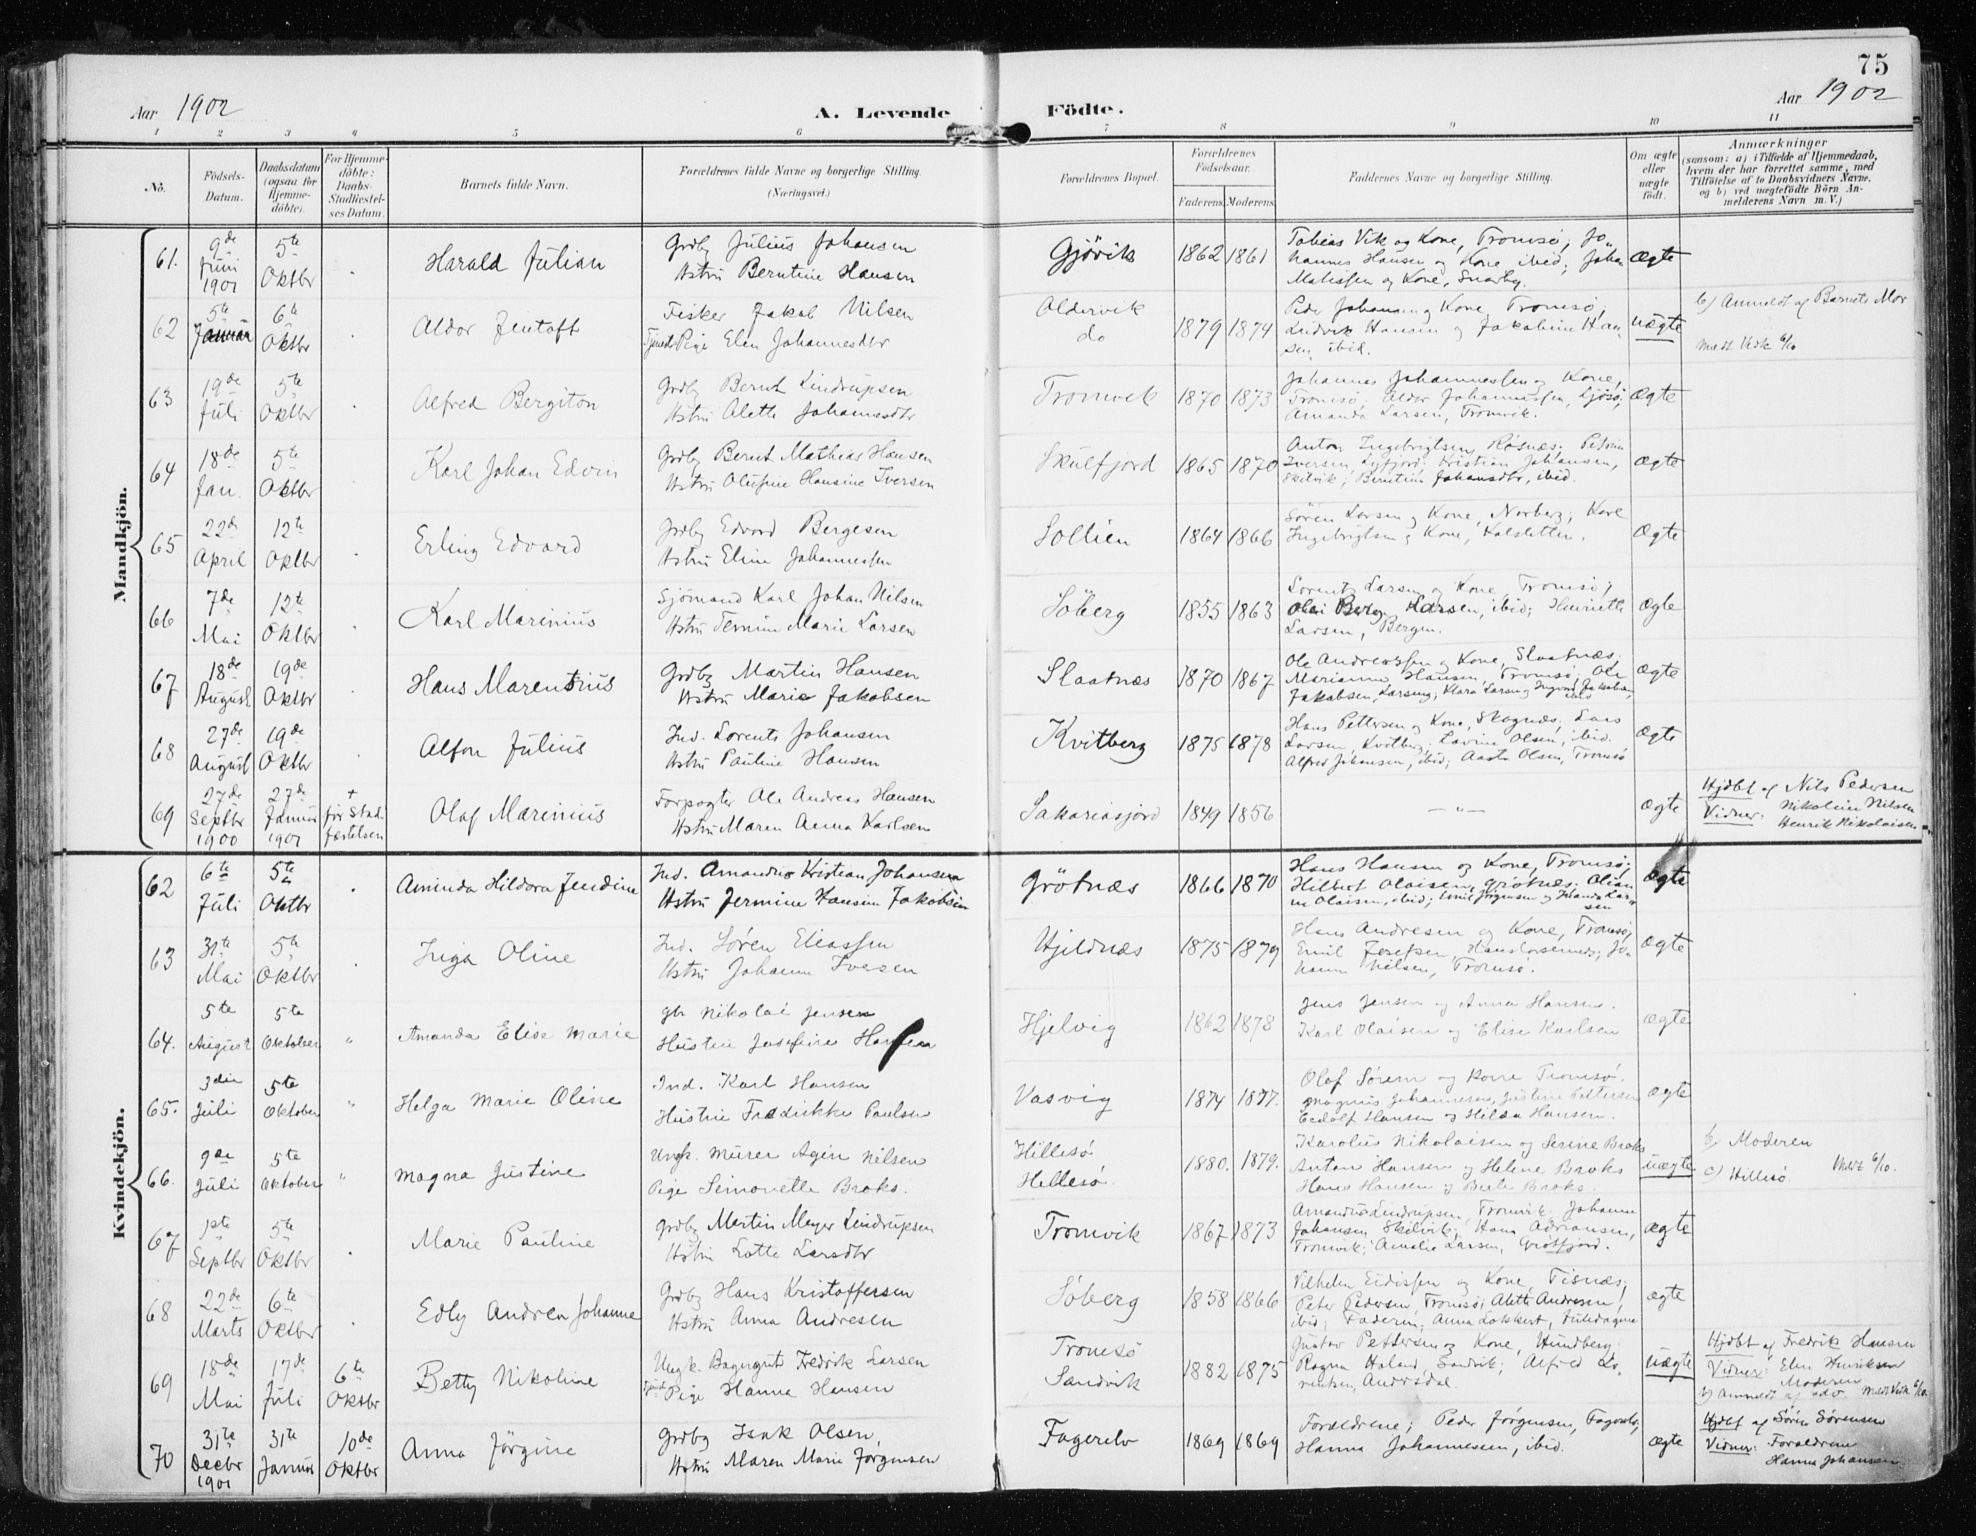 75
Aar 1902
A. Levende Födte.
Aar 1902
1 2 3 4 5 6 7 8 9 10 11
No.
Födsels-
Datum.
Daabsdatum
(ogsaa for
Hjemme-
döbte).
For Hjemme-
döbte:
Daabs-
Stadfæstel-
ses Datum.
Barnets fulde Navn.
Forældrenes fulde Navne og borgerlige Stilling.
(Næringsvei.)
Forældrenes Bopæl.
Forældrenes
Födselsaar.
Faderens. Moderens.
Faddernes Navne og borgerlige Stilling.
Om ægte
eller
uægte
födt.
Anmærkninger
(saasom: a) i Tilfælde af Hjemmedaab,
hvem der har forrettet samme, med
Tilföielse af to Daabsvidners Navne,
og b) ved uægtefödte Börn An-
melderens Navn m. V.)
Mandkjön.
61. 9de Juni 1901 5te Oktbr Harald Julian
Grdbr Julius Johansen
Hstru Berntine Hansen
Gjövik 1862 1861
Tobias Vik og Kone, Tromsö; Jo-
hannes Hansen og Kone ibid; Johan
Mathissen og Kone, Snarby.
ægte
62 5te Januar 6te Oktbr Aldor Jentoft
Fisker Jakob Nilsen
Tjenede Pige Elen Johannesdtr
Aldervik
do
1879 1874
Peder Johansen og Kone, Tromsö,
Ludvik Hansen og Jakobine Han-
sen, ibid.
uægte
b) Anmeldt af Barnets Mor
Medt Vedk 6/10
63 19de Juli 5te Oktbr Alfred Bergiton
Grdbr Bernt Lindrupsen
Hstru Alette Johannesdtr
Tromvik 1870 1873
Johannes Johannessen og Kone,
Tromsö; Aldor Johannessen,
Amanda Larsen, Tromvik.
ægte
64 18de Jan. 5te Oktbr Karl Johan Edvin
Grdbr Bernt Mathias Hansen
Hstru Olufine Hansine Iversen
Skulfjord 1865 1870
Anton Ingebrigtsen, Røsnæs;
Iversen, Kristian Johansen,
Skitvik; Berntine Johansdtr, ibid.
ægte
65 22de April 12te Oktbr Erling Edvard
Grdbr Edvard Bergesen
Hstru Eline Johannessen
Sollien 1864 1866
Sören Larsen og Kone, Norberg; Karl
Ingebrigtsen og Kone, Kalsletten.
ægte
66 7de Mai 12te Oktbr Karl Marinius
Sjömand Karl Johan Nilsen
Hstru Marie Larsen
Söberg 1855 1863
Lorentz Larsen og Kone, Tromsö;
Berg Larsen, ibid; Henriette
Larsen, Bergen.
ægte
67 18de August 19de Oktbr Hans Marentius
Grdbr Martin Hansen
Hstru Marie Jakobsen
Slaatnæs 1870 1867
Ole Andreassen og Kone, Slaatnæs;
Marianne Hansen, Tromsö; Ole
Jakobsen, Klara Larsen, Ingvart Jakobsen,
ibid
ægte
68 27de August 19de Oktbr Alfon Julius
Ind. Lorents Johansen
Hstru Pauline Hansen
Kvitberg 1875 1878
Hans Pettersen og Kone, Skognæs; Lars
Larsen, Kvitberg; Lovine Olsen, ibid.
Alfred Johansen, ibid; Aasta Olsen, Tromsö
ægte
69 27de Septbr 1900 27de Januar 1901 + før Stad-
fæstelsen
Olaf Marinius
Forpagter Ole Andreas Hansen
Hstru Maren Anna Karlsen
Sakariasjord 1849 1856
— " —
ægte
Hjdbt af Nils Pedersen
Vidner: Nikoline Nilsen
Henrik Nikolaisen
Kvindekjön.
62 6te Juli 5te Oktbr Aminda Hildora Jendine
Ind. Amandus Kristian Johansen
Hstru Jermine Hansine Jakobsen
Grötnæs 1866 1870
Hans Hansen og Kone, Tromsö;
Hilbert Olaisen, Grötnæs; Olian-
ne Olaisen, ibid; Emil Jörgensen og Lar-
sen
ægte
63 31te Mai 5te Oktbr Inga Oline
Ind. Sören Eliassen
Hstru Johanna Iversen
Hjeldnæs 1875 1879
Hans Andresen og Kone, Tromsö;
Emil Josefsen, Jo-
hanna Nilsen, Tromsö.
ægte
64. 5te August 5te Oktober " Amanda Elise Marie
gbr Nikolai Jensen
Hustru Josefine Hansen
Hjelvig 1862 1878
Jens Jensen og Anna Hansen.
Karl Olaisen og Elise Karlsen
ægte
65. 3die Juli 5te Oktober " Helga Marie Oline
Ind. Karl Hansen
Hustru Fredrikke Paulsen
Vasvig 1874 1877.
Olaf Sörem og Kone Tromsö.
Magnus Johannesen, Justine Pettersen
Eedolf Hansen og Hilda Hansen.
ægte
66. 9de Juli 5te Oktober " Magna Justine
Ungk. Murer Agin Nilsen
Pige Simonette Broks.
Hillesö
Hellesö.
1880. 1879.
Karolus Nikolaisen og Serine Broks
Anton Hansen og Helene Broks
Hans Hansen og Berte Broks.
uægte
b) Moderen
c) Hillesö. Medt 6/10.
67 1ste Septbr 5te Oktbr Marie Pauline
Grdbr Martin Meyer Lindrupsen
Hstru Lotte Larsdtr
Tromvik 1867 1873
Amandus Lindrupsen, Tromvik; Johanne
Johansen, Skitvik; Hans Adriansen,
Tromvik; Amalie Larsen, Grötfjord.
ægte
68 22de Marts 6te Oktbr Edly Andrea Johanne
Grdbr Hans Kristoffersen
Hstru Anna Andresen
Söberg 1858 1866
Vilhelm Eidissen og Kone, Tisnæs;
Peter Pedersen, Tromsö; Alette Andresen,
ibid; Faderen; Anna Lokkert,
ægte
69 18de Mai 17de Juli 6te Oktbr Betty Nikoline
Ungk. Bagergut Fredrik Larsen
Tjenede Pige Hanna Hansen
Tromsö
Sandvik
1882 1875
Gustav Pettersen og Kone, Hundberg.
Ragna Haland, Sandvik; Alfred Lo-
rentsen, Andersdal.
uægte
Hjdbt af Fredrik Hansen
Vidner: Elen Henriksen
Moderen
b) Anmeldt af do. Medt Vedk 6/10.
70 31te Decbr 1901 31te Januar 10de Oktbr Anna Jörgine
Grdbr Isak Olsen,
Hstru Maren Marie Jörgensen
Fagerelv 1869 1869
Forældrene; Peder Jörgensen, Fagerelv,
Hanna Johannesen, ibid.
ægte
Hjdbt af Sören Sörensen
Vidner: Forældrene
Hanna Johansen